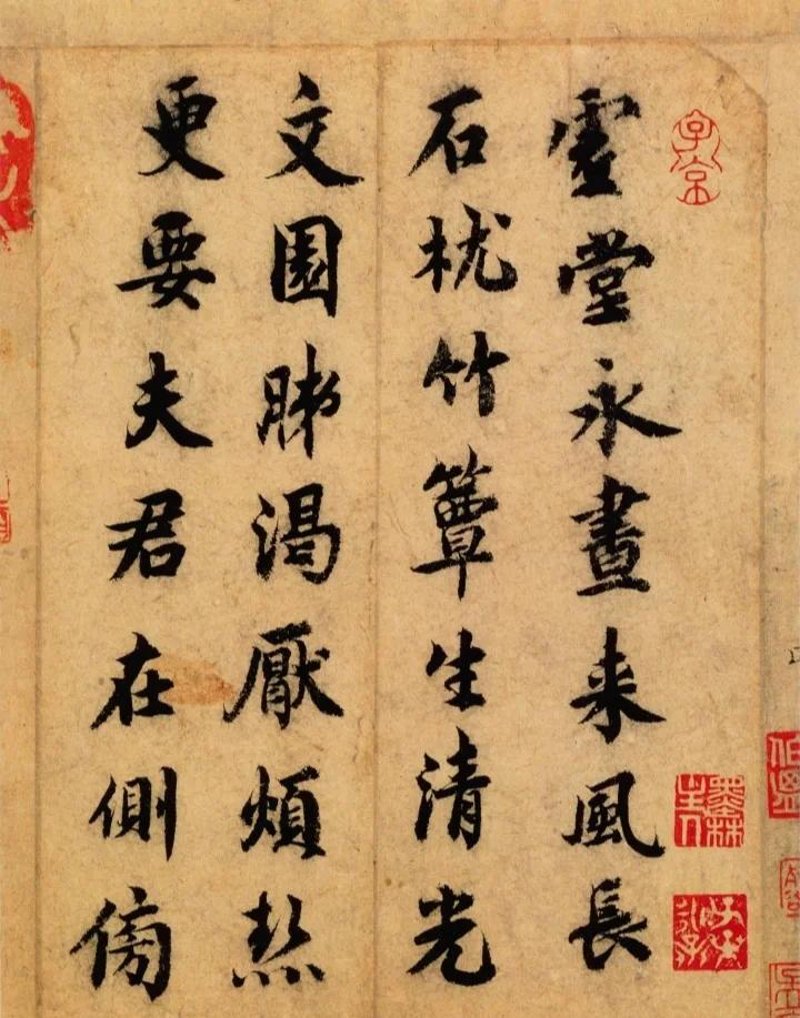 虛堂永晝来風長
石枕竹簟生清光
文園肺渴厭煩𤍠
更要夫君在側傍